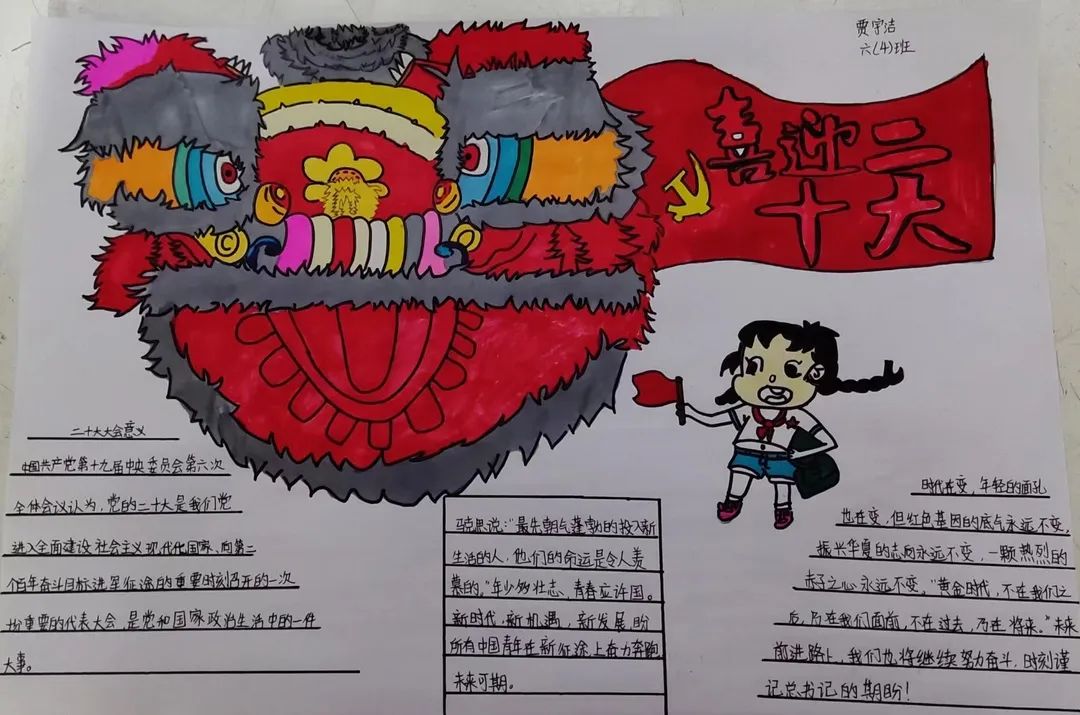 贾宇洁
六(4)班
喜迎二
十大
二十大大会意义
中国共产党第十九届中央委员会第六次
全体会议认为，党的二十大是我们党
进入全面建设社会主义现代化国家、向第二
个百年奋斗目标进军征途的重要时刻召开的一次
十分重要的代表大会，是党和国家政治生活中的一件
大事。
马克思说："最先朝气蓬勃的投入新
生活的人，他们的命运是令人羡
慕的。"年少多壮志，青春应许国。
新时代，新机遇，新发展，盼
所有中国青年在新征途上奋力奔跑
未来可期。
时代在变，年轻的面孔
也在变，但红色基因的底气永远不变，
振兴华夏的志向永远不变，一颗热烈的
赤子之心永远不变，"黄金时代，不在我们之
后，乃在我们面前，不在过去，乃在将来。"未来
前进路上，我们也将继续努力奋斗，时刻谨
记总书记的期盼！